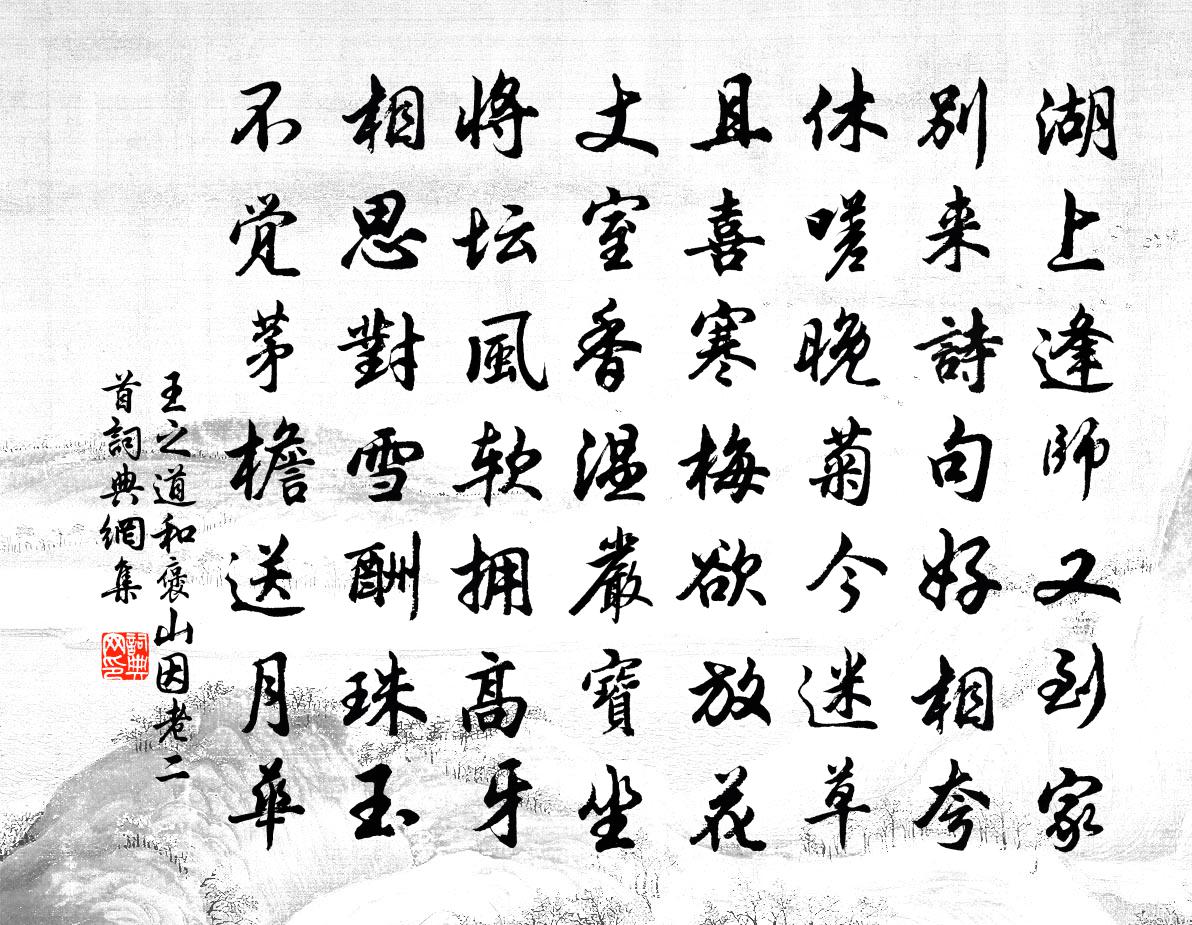 湖上逢師又到家
別来詩句好相夸
休嗟晚菊今迷草
且喜寒梅欲放花
丈室香温嚴寶坐
將坛風软拥高牙
相思對雪酬珠玉
不覺茅檐送月華
王之道和褒山因老二
首詞典網集
詞典
网印